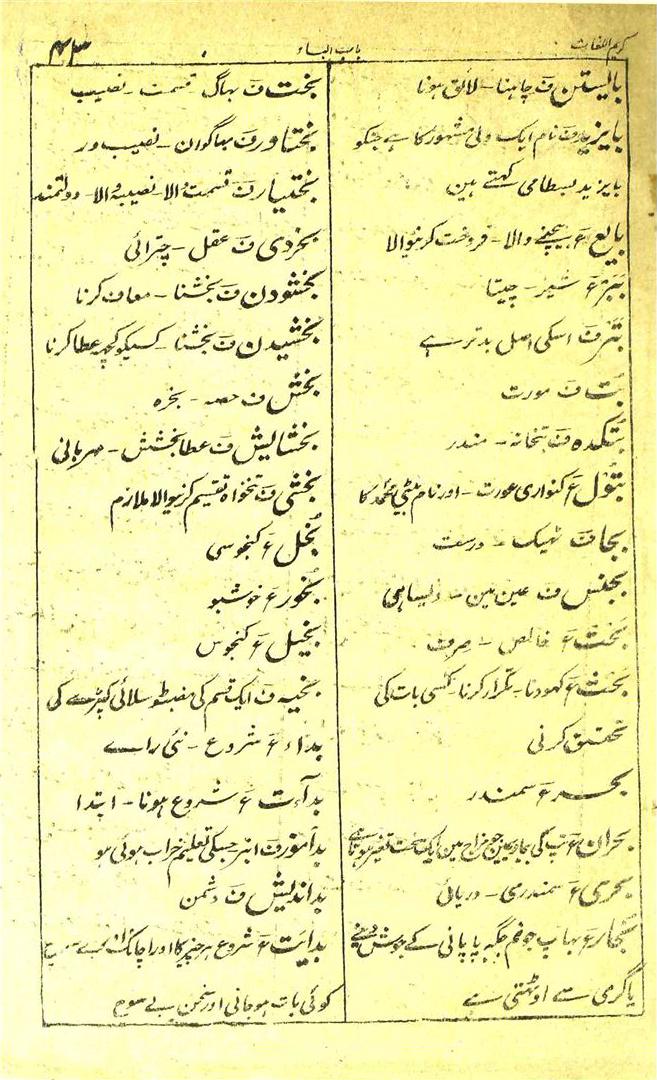 کریم اللغات
باب الباء
۴۳
بایستن ف چاہنا۔ لائق ہونا
بایزید ف نام ایک ولی مشہور کا ہے جنکو
بایزید بسطامی کہتے ہین
بایع ع بیچنے والا۔ فروخت کرنیوالا
ببر ع شیر۔ چیتا
بتر ف اسکی اصل بدتر ہے
بت ف مورت
بتکدہ ف بتخانہ۔ مندر
بتول ع کنواری عورت۔ اور نام بیٹی محمد کا
بجا ف ٹھیک۔ درست
بجنس ف عین مین۔ ویسا ہی
بحت ع خالص۔ صرف
بحث ع کھودنا۔ تکرار کرنا۔ کسی بات کی
تحقیق کرنی
بحر ع سمندر
بحران ع تپ کی بیماری مین جو مزاج مین ایک سخت تغیر ہوتا ہے
بحری ع سمندری۔ دریائی
بخار ع بھاپ جو نم جگہ یا پانی کے جوش دینے
یا گرمی سے اوٹھتی ہے
بخت ف بھاگ قسمت۔ نصیب
بختاور ف بھاگوان۔ نصیب ور
بختیار ف قسمت والا۔ نصیبہ والا۔ دولتمند
بخردی ف عقل۔ چترائی
بخشودن ف بخشنا۔ معاف کرنا
بخشیدن ف بخشنا۔ کسیکو کچھ عطا کرنا
بخش ف حصہ۔ بخرہ
بخشایش ف عطا بخشش۔ مہربانی
بخشی ف تنخواہ تقسیم کرنیوالا ملازم
بخل ع کنجوسی
بخور ع خوشبو
بخیل ع کنجوس
بخیہ ف ایک قسم کی مضبوط سلائی کپڑے کی
بداء ع شروع۔ نئی راے
بدآءت ع شروع ہونا۔ ابتدا
بدآموز ف ابتر جسکی تعلیم خراب ہوئی ہو
بداندیش ف دشمن
بدایت ع شروع ہر چیز کا اور اچانک
کوئی بات ہو جانی اور سخن بے سوچ